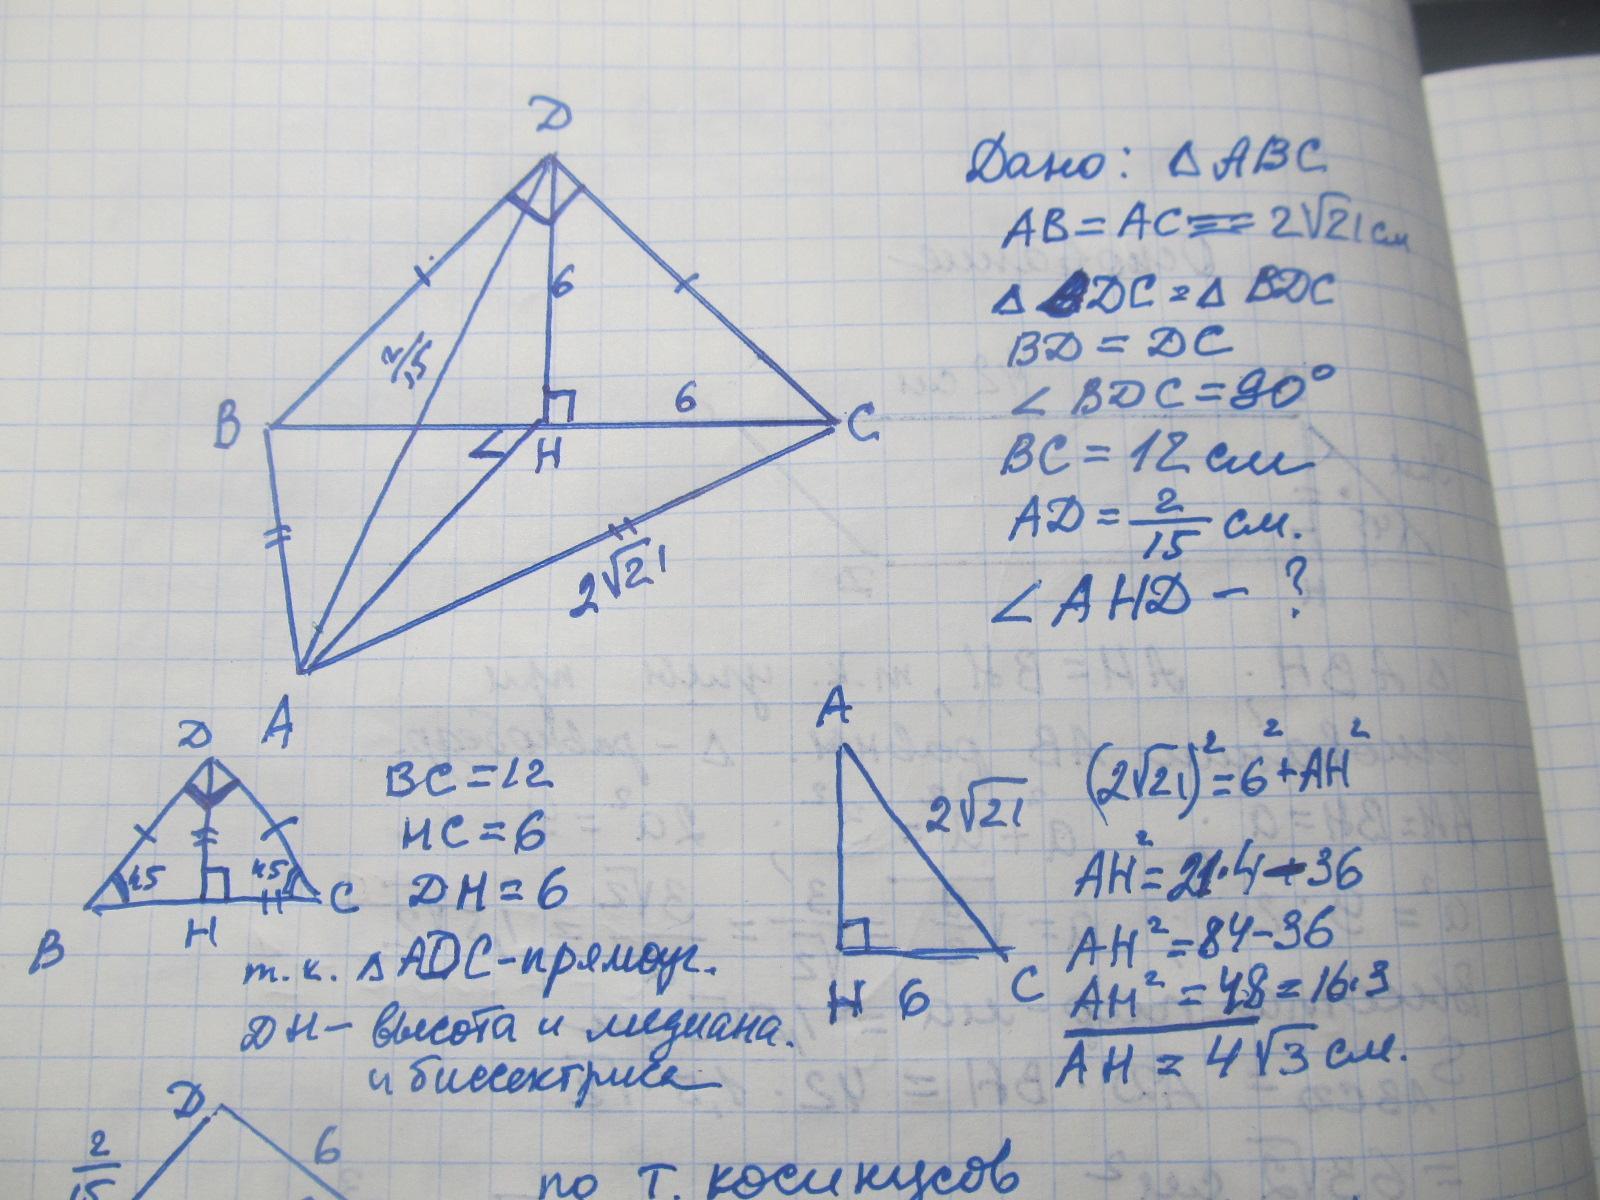 D
Дано: Δ ABC
AB = AC == 2√21 см
Δ ADC = Δ BDC
BD = DC
∠ BDC = 90°
BC = 12 см
AD = 2/15 см.
∠ AHD - ?
6
2/15
B
6
C
H
2√21
A
D
45
45
B
H
C
BC = 12
HC = 6
DH = 6
т.к. Δ ADC - прямоуг.
DH - высота и медиана.
и биссектриса
A
2√21
H 6 C
(2√21)² = 6² + AH²
AH² = 21·4 - 36
AH² = 84 - 36
AH² = 48 = 16·3
AH = 4√3 см.
D
2/15
6
по т. косинусов